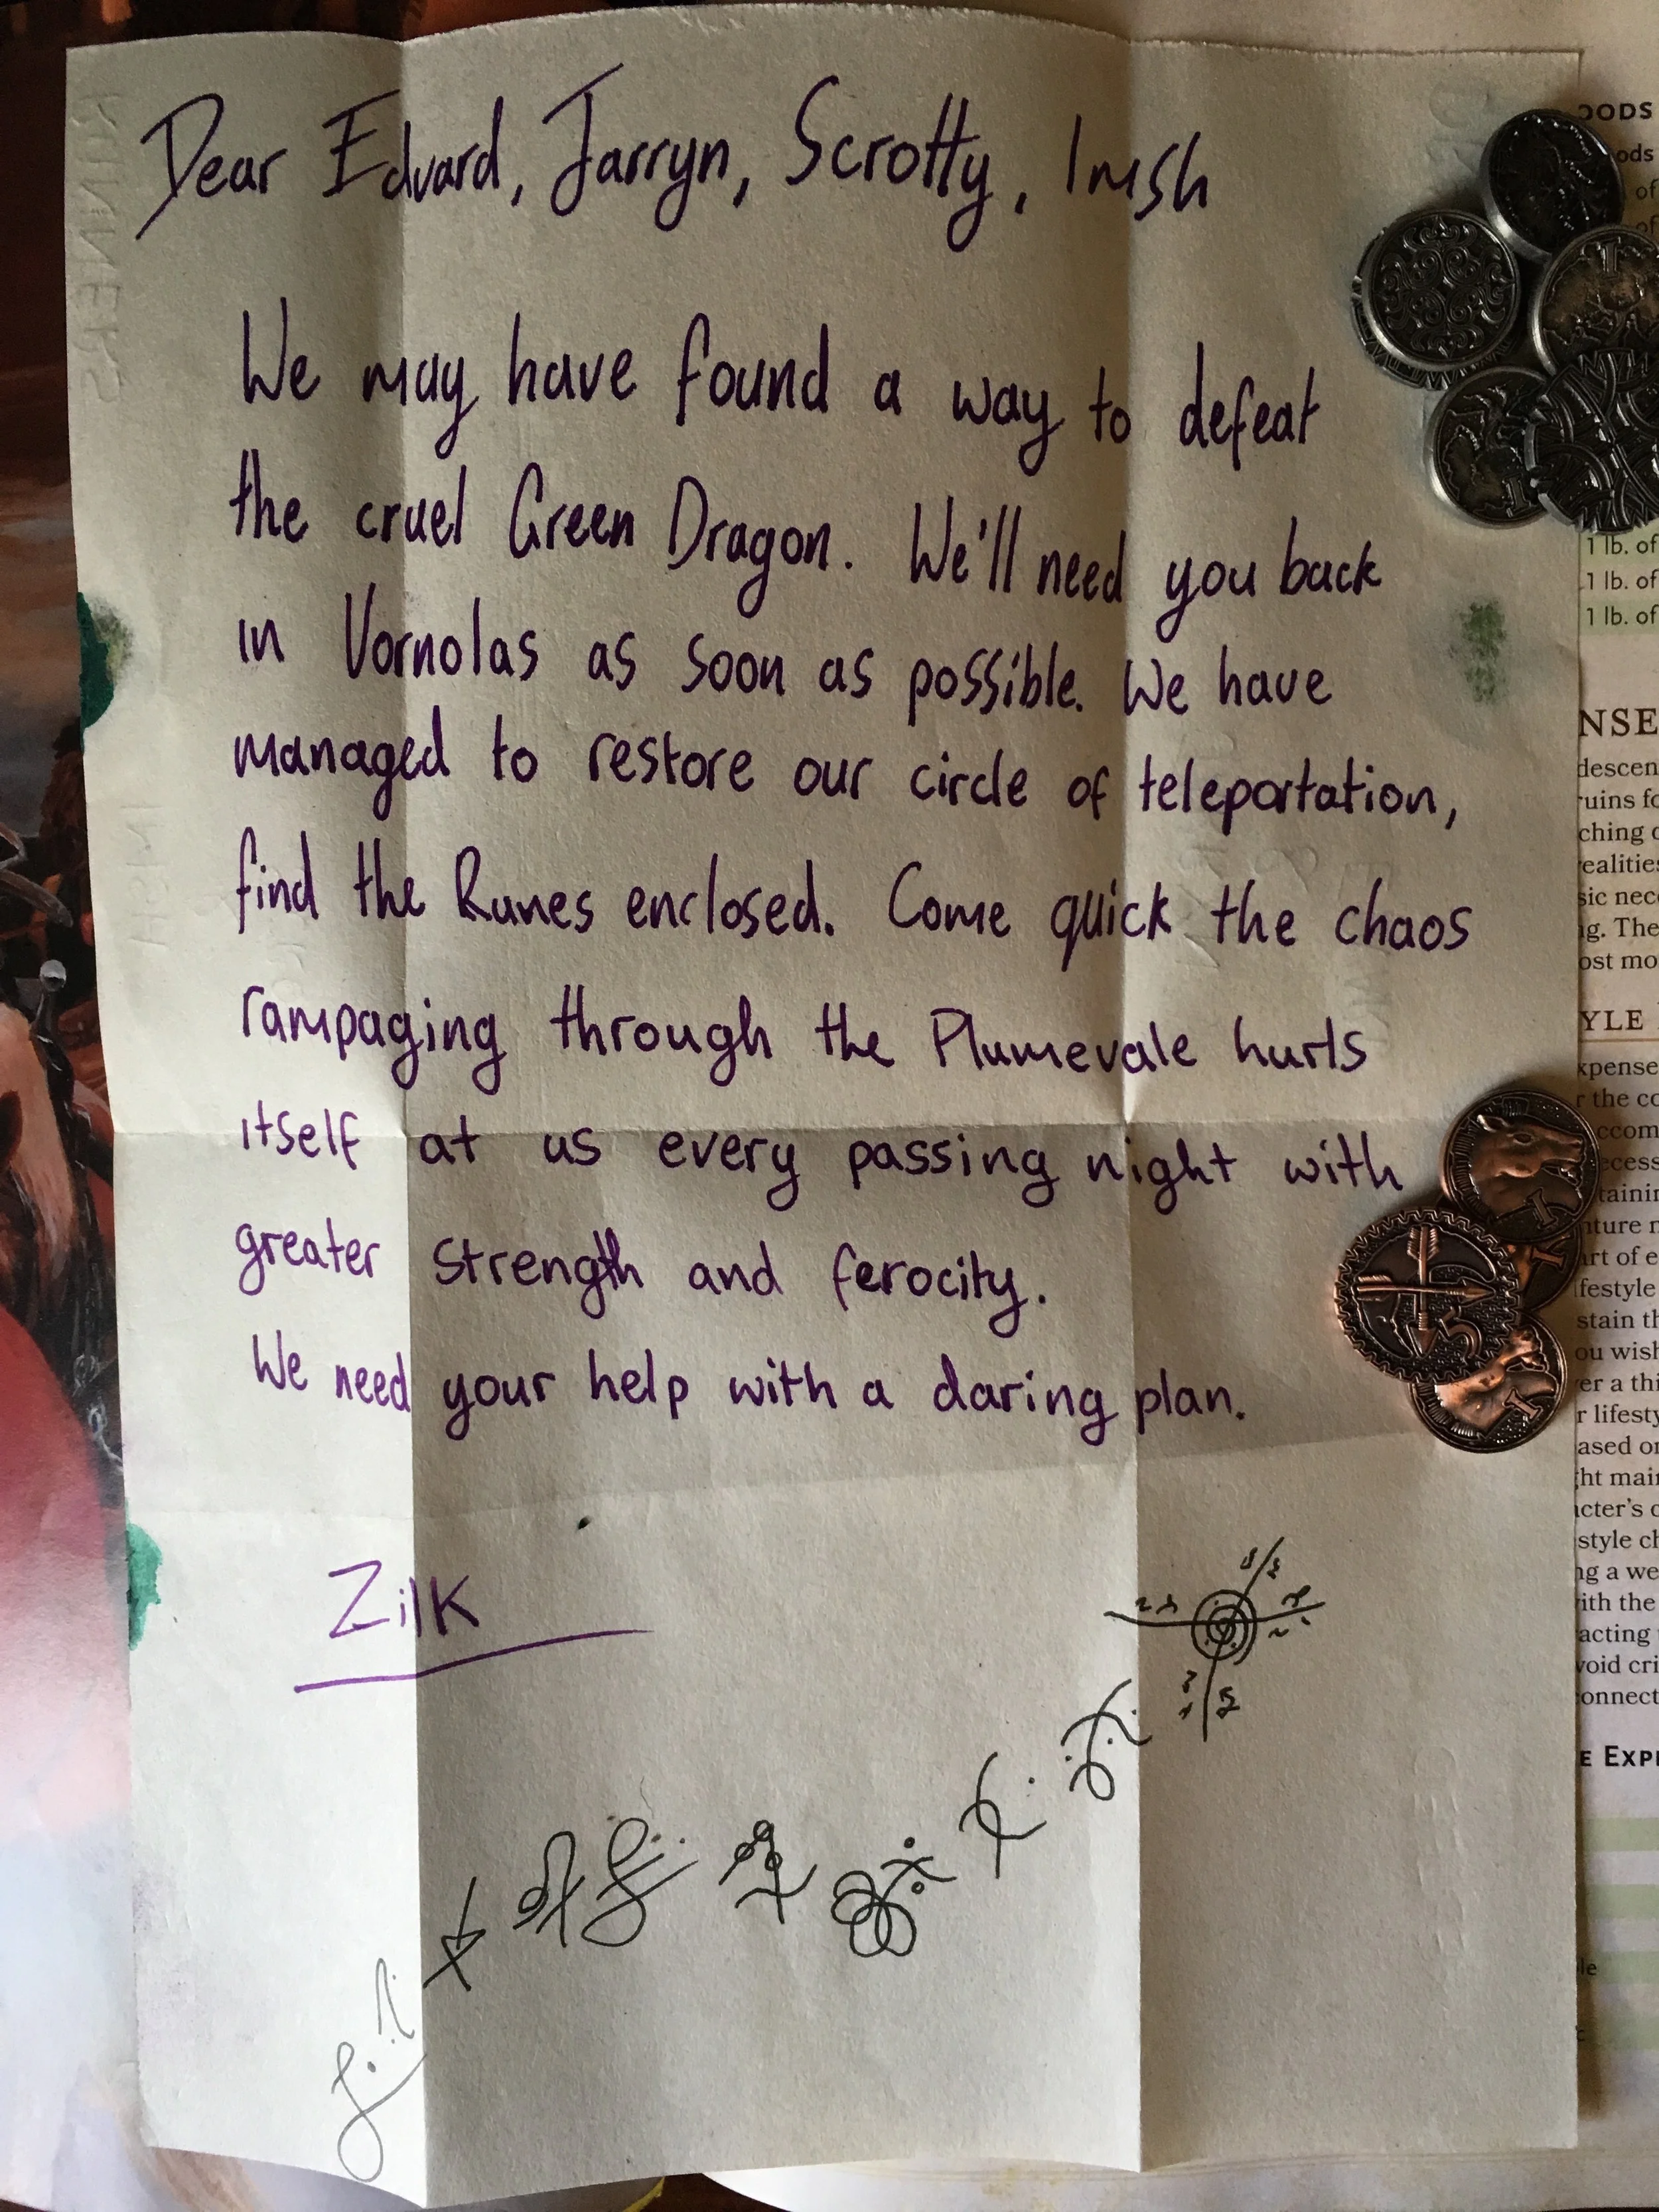 Dear Edvard, Jarryn, Scrotty, Imsh
We may have found a way to defeat
the cruel Green Dragon. We'll need you back
in Vornolas as soon as possible. We have
managed to restore our circle of teleportation,
find the Runes enclosed. Come quick the chaos
rampaging through the Plumevale hurls
itself at us every passing night with
greater strength and ferocity.
We need your help with a daring plan.
Zilk
OODS
ods
of
of
1 lb. of
1 lb. of
1 lb. of
NSE
descen
uins fo
ching
ealities
sic nec
g. The
ost mo
YLE
xpense
r the co
ccom
ecess
tainin
nture
art of e
festyle
stain th
ou wish
er a thi
r lifesty
ased on
ht main
cter's
style ch
ng a we
ith the
acting
void cri
onnect
E EXPE
5
1
1